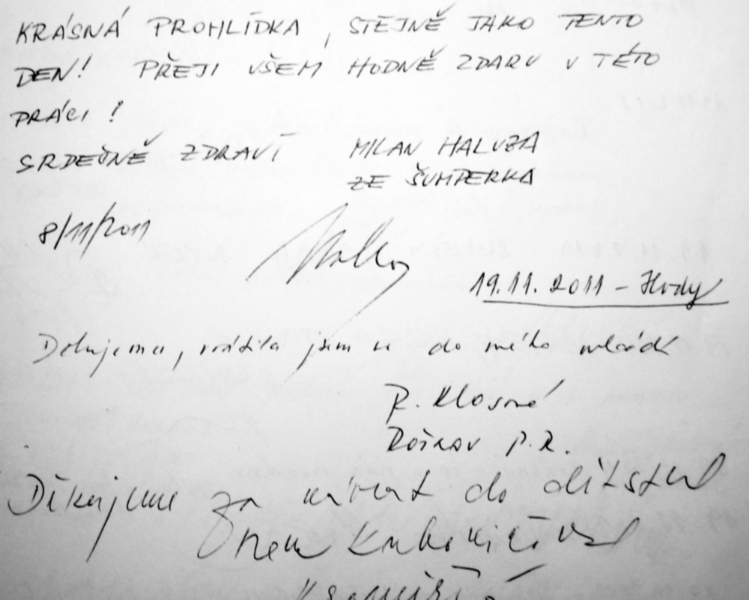 KRÁSNÁ PROHLÍDKA, STEJNĚ JAKO TENTO
DEN! PŘEJI VŠEM HODNĚ ZDARU V TÉTO
PRÁCI!
SRDEČNĚ ZDRAVÍ MILAN HALUZA
ZE ŠUMPERKA
8/11/2011
19.11.2011 - Hody
Děkujeme, vrátila jsem se do mého mládí
R. Klosová
P.R.
Děkujeme za návrat do dětství